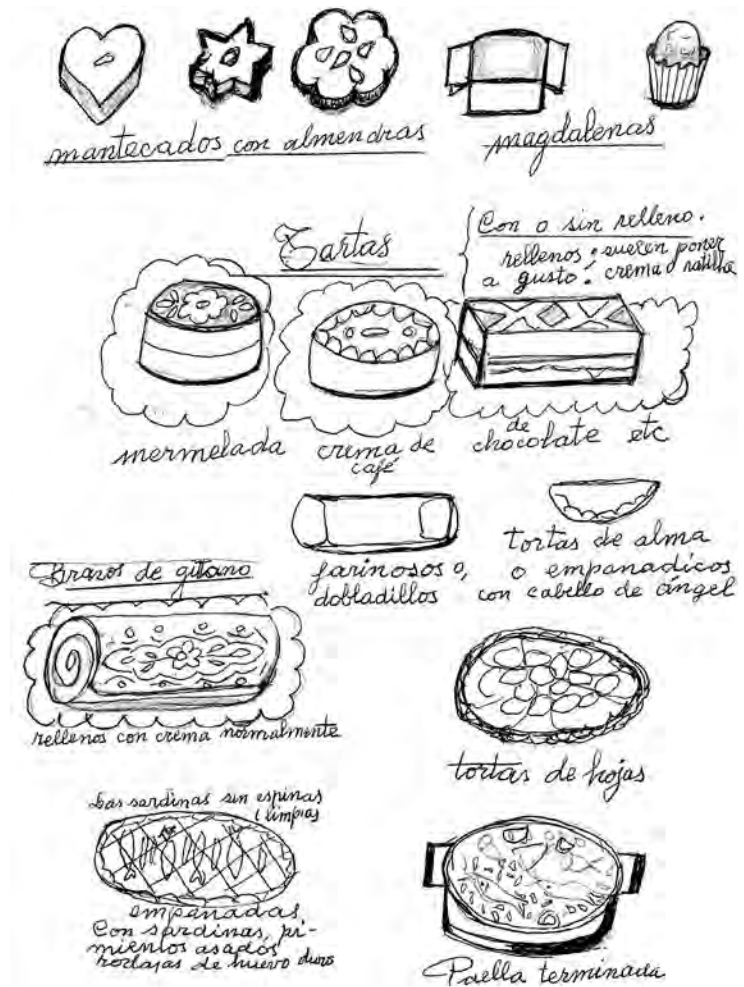 mantecados con almendras
magdalenas
Tartas
Con o sin relleno.
rellenos: suelen poner
a gusto: crema o natilla
mermelada
crema de
café
de
chocolate etc
farinosos o,
dobladillos
tortas de alma
o empanadicos
con cabello de ángel
Brazos de gitano
rellenos con crema normalmente
tortas de hojas
Las sardinas sin espinas
y limpias
empanadas
Con sardinas, pi-
mientos asados
rodajas de huevo duro
Paella terminada